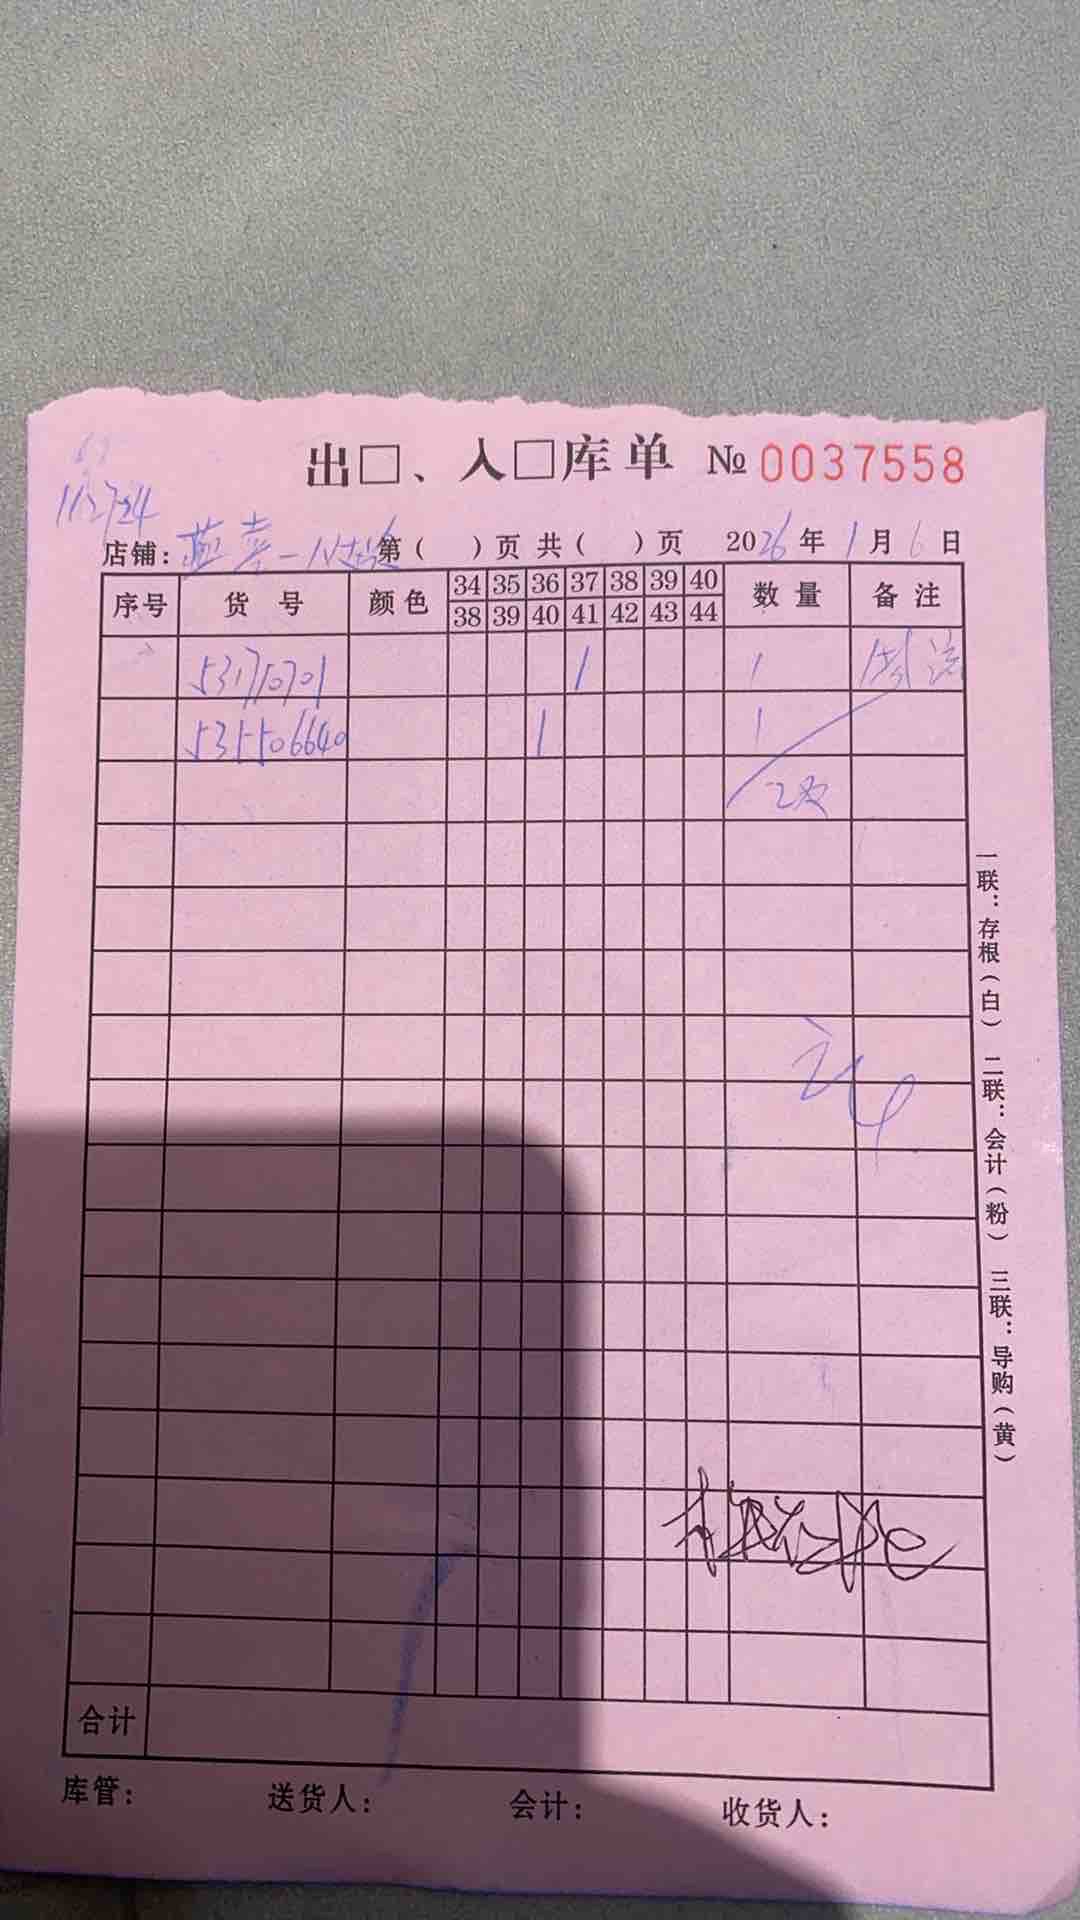 出□、入□库单 № 0037558
112724
店铺: 第( )页 共( )页 2026年1月6日
序号 货号 颜色 34 35 36 37 38 39 40 数量 备注
38 39 40 41 42 43 44
53171070​1 1 1
535506640 1 1
2双
合计
库管: 送货人: 会计: 收货人:
一联:存根(白) 二联:会计(粉) 三联:导购(黄)